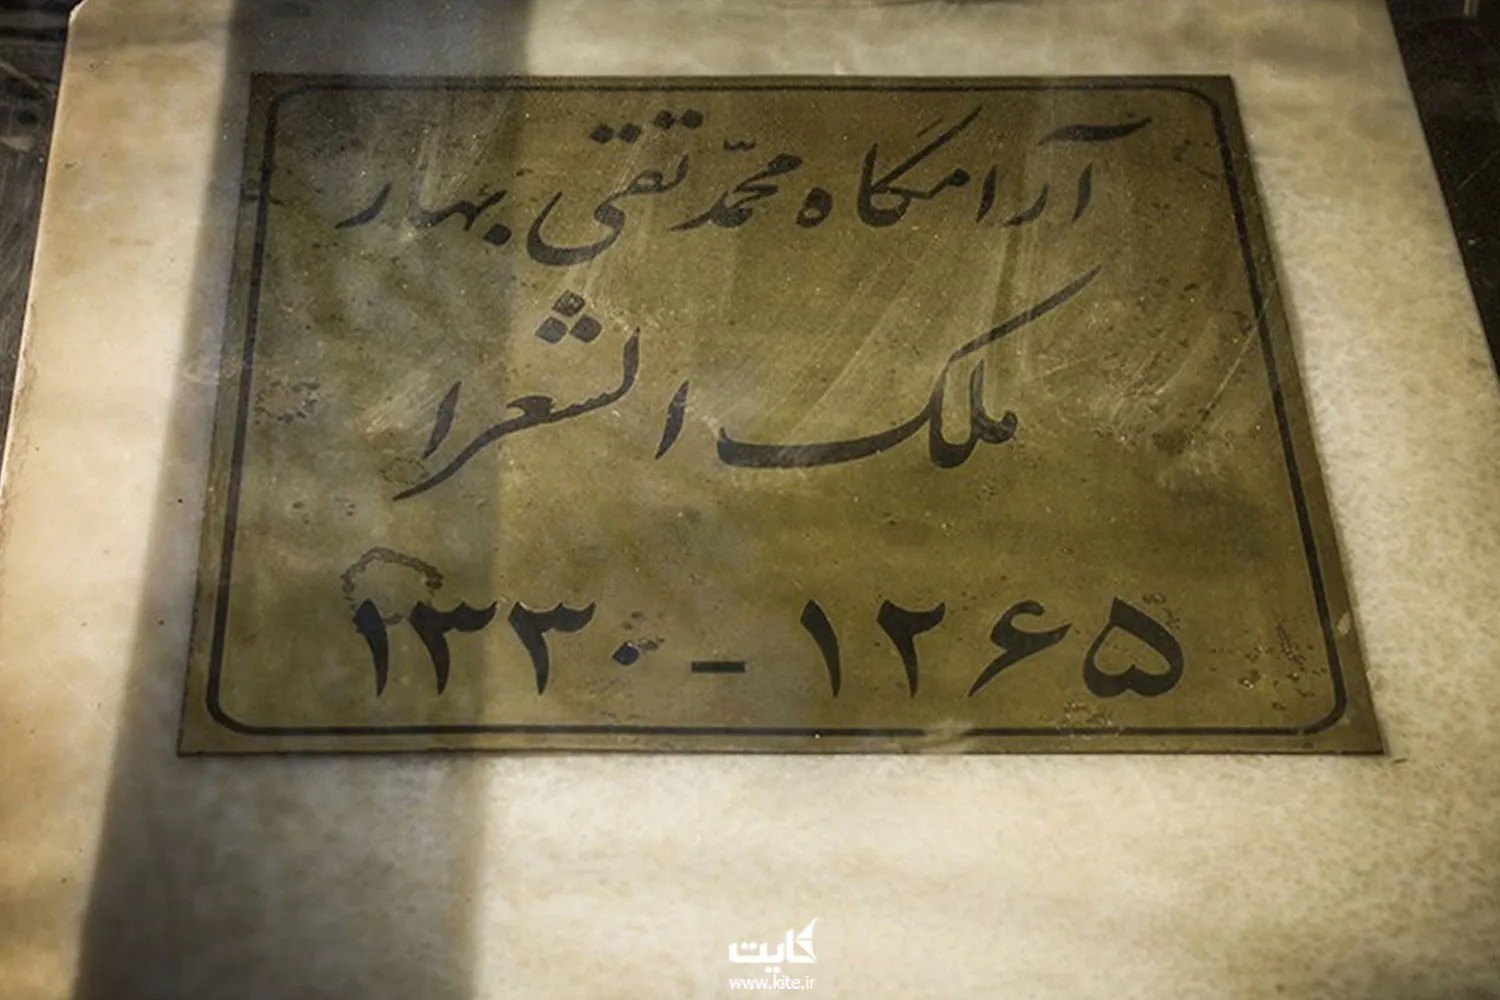 آرامگاه محمّد تقی بهار
ملک الشعرا
۱۲۶۵ - ۱۳۳۰
کایت
www.kite.ir